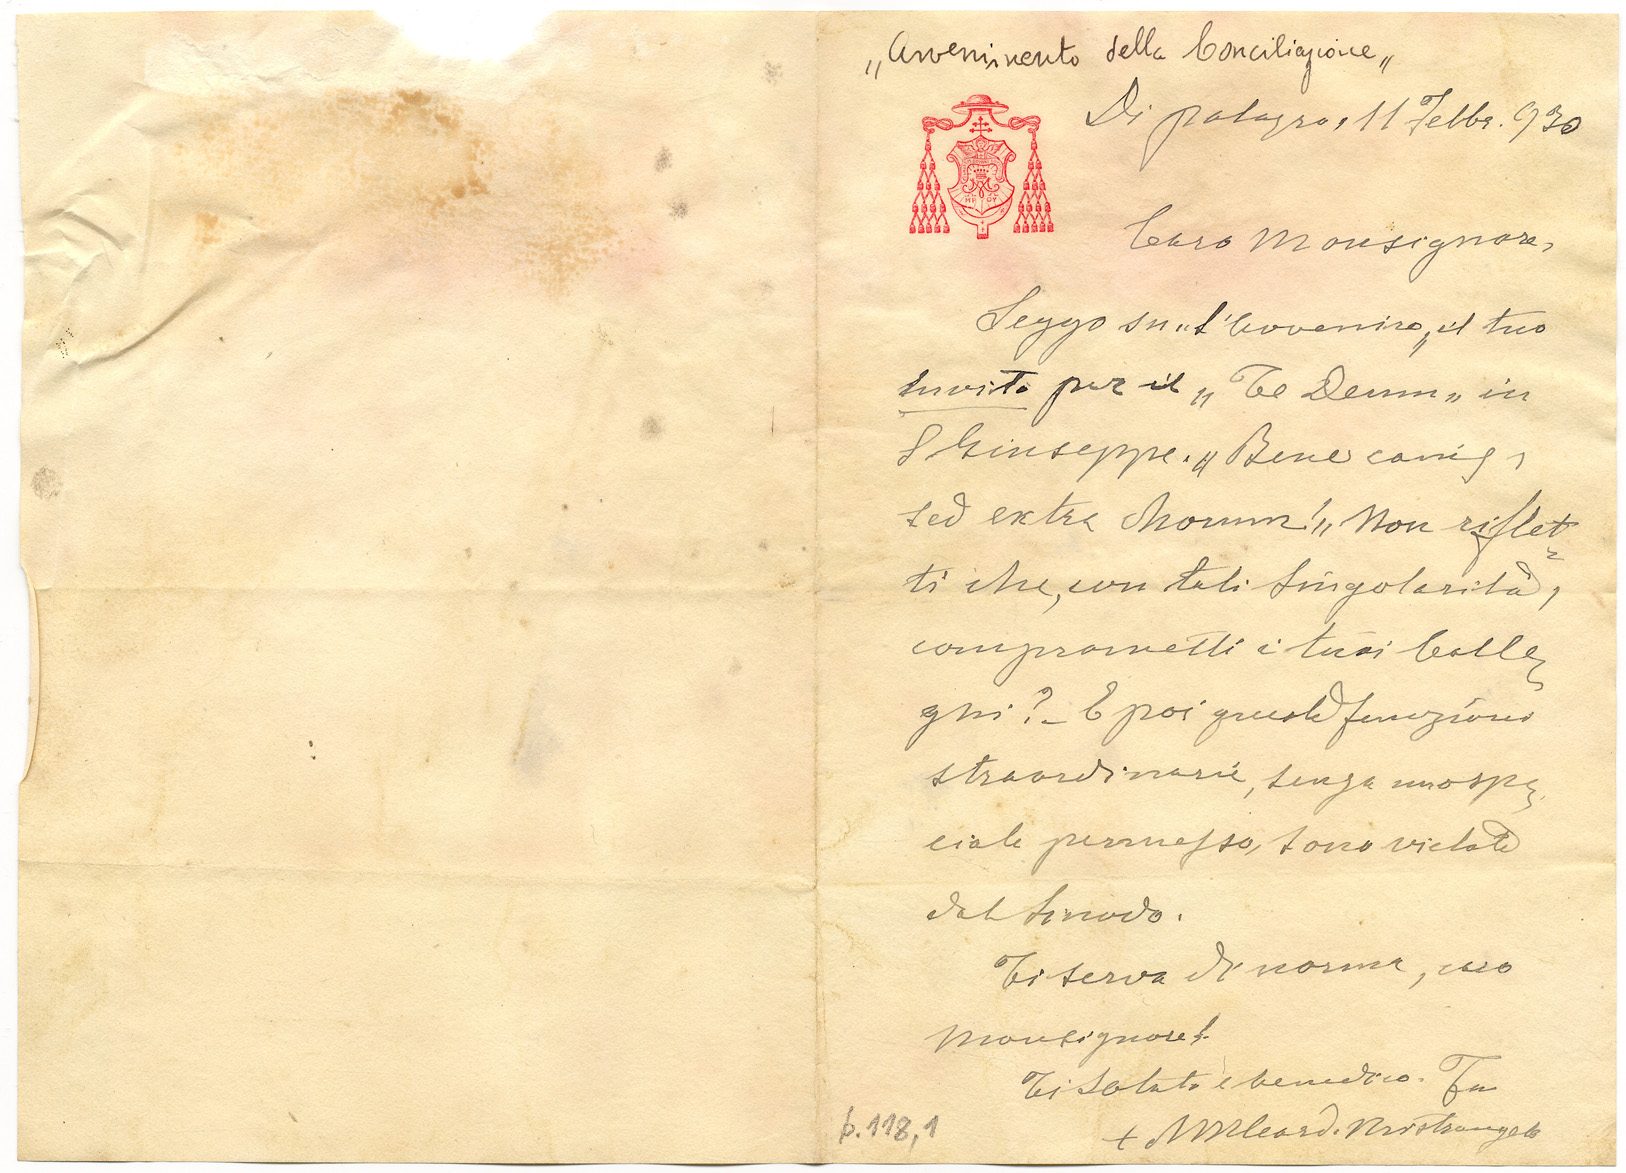 „Avvenimento della Conciliazione„
Di palazzo, 11 Febbr. 930
Caro Monsignore,
Leggo su „L'Avvenire„ il tuo
invito per il „Te Deum„ in
S Giuseppe. „Bene canis,
sed extra chorum!„ Non riflet-
ti che, con tali singolarità,
comprometti i tuoi Colle-
ghi? - E poi queste funzioni
straordinarie, senza uno spe-
ciale permesso, sono vietate
dal Sinodo.
Ti serva di norma, caro
Monsignore!
Ti saluto e benedico. Tu
+ AM Card. Mistrangelo
p. 118,1